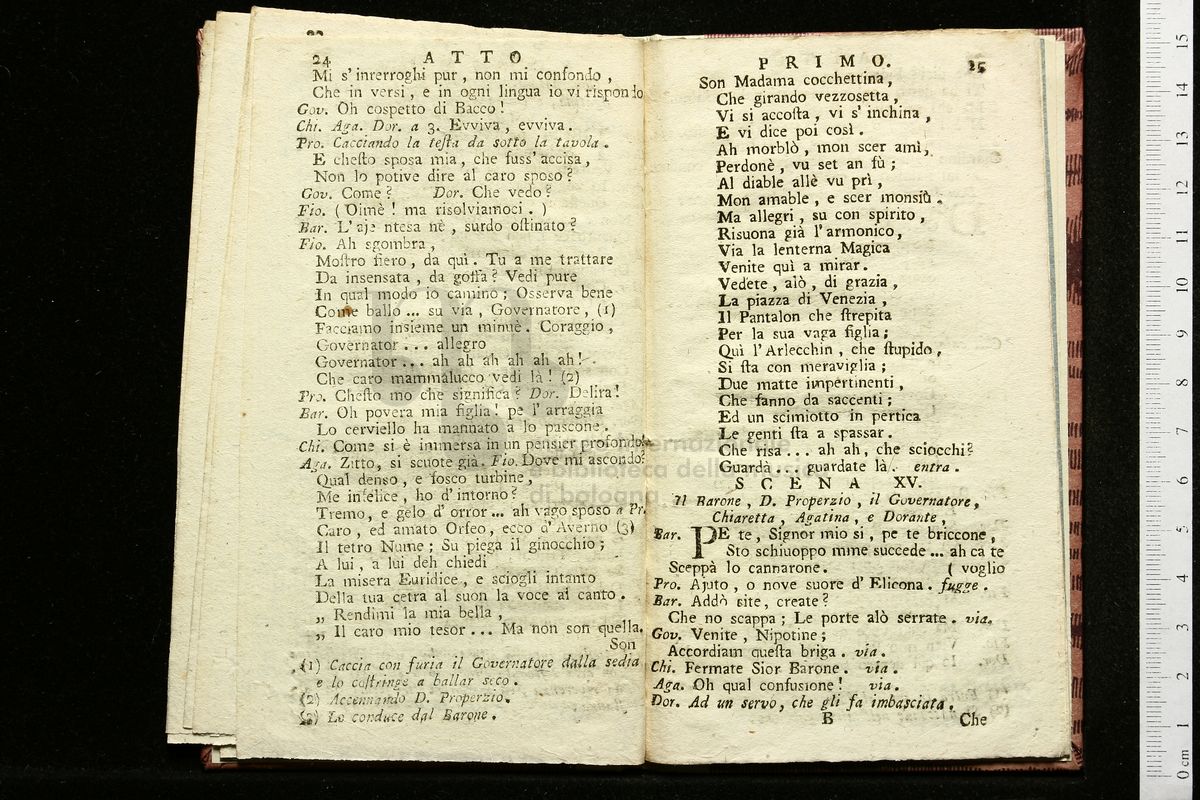 24 ATTO
Mi s'inrerroghi pur, non mi confondo,
Che in versi, e in ogni lingua io vi rispondo
Gov. Oh cospetto di Bacco!
Chi. Aga. Dor. a 3. Evviva, evviva.
Pro. Cacciando la teſta da sotto la tavola.
E cheſto sposa mia, che fuss'accisa,
Non lo potive dire al caro sposo?
Gov. Come? Dor. Che vedo?
Fio. (Oimè! ma risolviamoci.)
Bar. L'aje ntesa nè, surdo oſtinato?
Fio. Ah sgombra,
Moſtro fiero, da quì. Tu a me trattare
Da insensata, da goffa? Vedi pure
In qual modo io camino; Osserva bene
Come ballo... su via, Governatore, (1)
Facciamo insieme un minuè. Coraggio,
Governator... allegro
Governator... ah ah ah ah ah ah!
Che caro mammalucco vedi là! (2)
Pro. Cheſto mo che significa? Dor. Delira!
Bar. Oh povera mia figlia! pe l'arraggia
Lo cerviello ha mannato a lo pascone.
Chi. Come si è immersa in un pensier profondo!
Aga. Zitto, si scuote già. Fio. Dove mi ascondo?
Qual denso, e fosco turbine,
Me infelice, ho d'intorno?
Tremo, e gelo d'orror... ah vago sposo a Pr.
Caro, ed amato Orfeo, ecco d'Averno (3)
Il tetro Nume; Su piega il ginocchio;
A lui, a lui deh chiedi
La misera Euridice, e sciogli intanto
Della tua cetra al suon la voce al canto.
„ Rendimi la mia bella,
„ Il caro mio tesor... Ma non son quella.
Son
(1) Caccia con furia il Governatore dalla sedia
e lo coſtringe a ballar seco.
(2) Accennando D. Properzio.
(3) Lo conduce dal Barone.
PRIMO. 25
Son Madama cocchettina,
Che girando vezzosetta,
Vi si accoſta, vi s'inchina,
E vi dice poi così.
Ah morblò, mon scer amì,
Perdonè, vu set an fù;
Al diable allè vu prì,
Mon amable, e scer monsiù.
Ma allegri, su con spirito,
Risuona già l'armonico,
Via la lenterna Magica
Venite quì a mirar.
Vedete, alò, di grazia,
La piazza di Venezia,
Il Pantalon che ſtrepita
Per la sua vaga figlia;
Quì l'Arlecchin, che ſtupido,
Si ſta con meraviglia;
Due matte impertinenti,
Che fanno da saccenti;
Ed un scimiotto in pertica
Le genti ſta a spassar.
Che risa... ah ah, che sciocchi?
Guardà... guardate là. entra.
SCENA XV.
Il Barone, D. Properzio, il Governatore,
Chiaretta, Agatina, e Dorante,
Bar. PE te, Signor mio sì, pe te briccone,
Sto schiuoppo mme succede... ah ca te
Sceppà lo cannarone. ( voglio
Pro. Ajuto, o nove suore d'Elicona. fugge.
Bar. Addò site, create?
Che no scappa; Le porte alò serrate. via.
Gov. Venite, Nipotine;
Accordiam queſta briga. via.
Chi. Fermate Sior Barone. via.
Aga. Oh qual confusione! via.
Dor. Ad un servo, che gli fa imbasciata.
B Che
15
14
13
12
11
10
9
8
7
6
5
4
3
2
1
0 cm